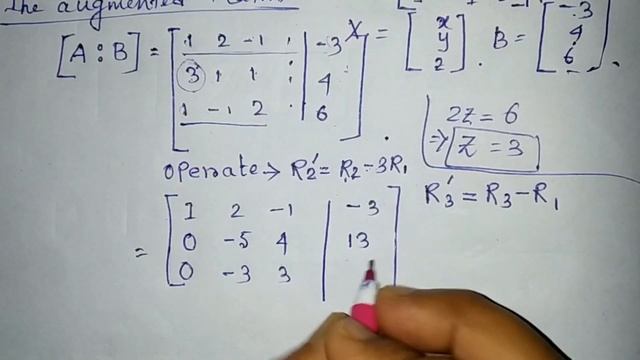 The augmented
[A : B] = [1 2 -1 : | -3] X = [x] . B = [-3]
[3 1 1 : | 4] [y] [4]
[1 -1 2 : | 6] . [z] [6] .
2z = 6
⇒ z = 3
operate → R₂' = R₂ - 3R₁
R₃' = R₃ - R₁
= [1 2 -1 | -3]
[0 -5 4 | 13]
[0 -3 3 |